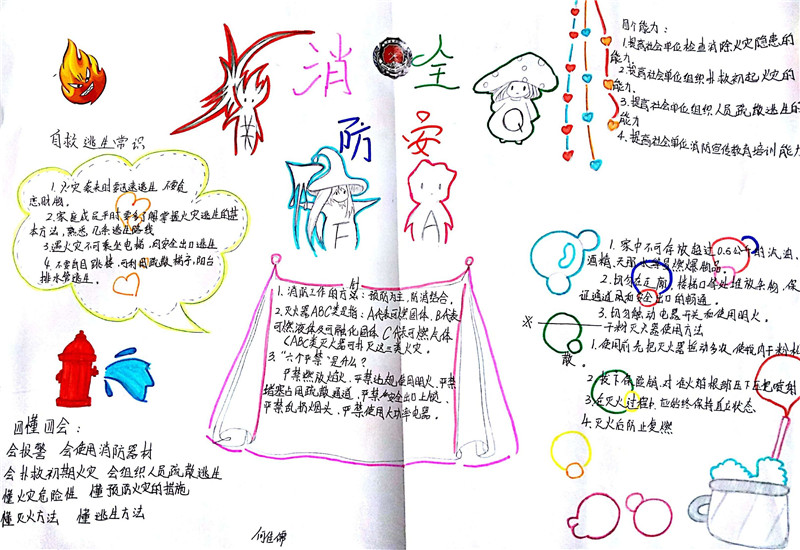 消
防
安
全
Q
A
自救逃生常识
1.火灾袭来时要迅速逃生 不要贪
恋财物。
2.家庭成员平时要了解掌握火灾逃生的基
本方法,熟悉几条逃生路线
3.遇火灾不可乘坐电梯,向安全出口逃生
4.不要盲目跳楼,可利用疏散梯子,阳台
排水管逃生。
四懂四会:
会报警 会使用消防器材
会扑救初期火灾 会组织人员疏散逃生
懂火灾危险性 懂预防火灾的措施
懂灭火方法 懂逃生方法
1.消防工作的方针:预防为主,防消结合。
2.灭火器ABC类是指:A代表可燃固体,B代表
可燃液体及可融化固体 C代表可燃气体
(ABC类灭火器可扑灭这三类火灾。
3."六个严禁"是什么?
严禁燃放烟火、严禁违规使用明火,严禁
堵塞占用疏散通道,严禁安全出口上锁,
严禁乱扔烟头,严禁使用大功率电器。
何佳锦
四个能力:
1.提高社会单位检查消除火灾隐患的
能力。
2.提高社会单位组织扑救初起火灾的
能力。
3.提高社会单位组织人员疏散逃生的
能力
4.提高社会单位消防宣传教育培训能力
1.家中不可存放超过0.5公斤的汽油,
酒精、天那水等易燃爆物品。
2.切勿在走廊、楼梯口等处堆放杂物,保
证通道和安全出口的畅通。
3.切勿触动电器开关和使用明火。
干粉灭火器使用方法
1.使用前先把灭火器摇动多次,使瓶内干粉松
散。
2.拔下保险销,对准火焰根部压下压把喷射
3.在灭火过程中,应始终保持直立状态
4.灭火后防止复燃